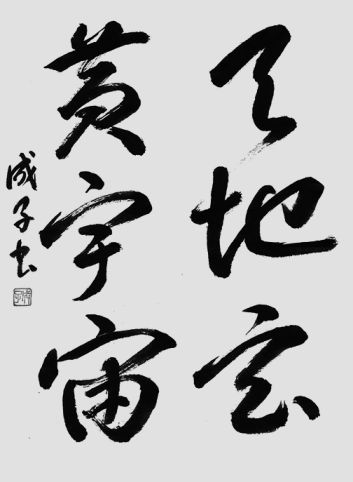 天地玄
黄宇宙
成子书